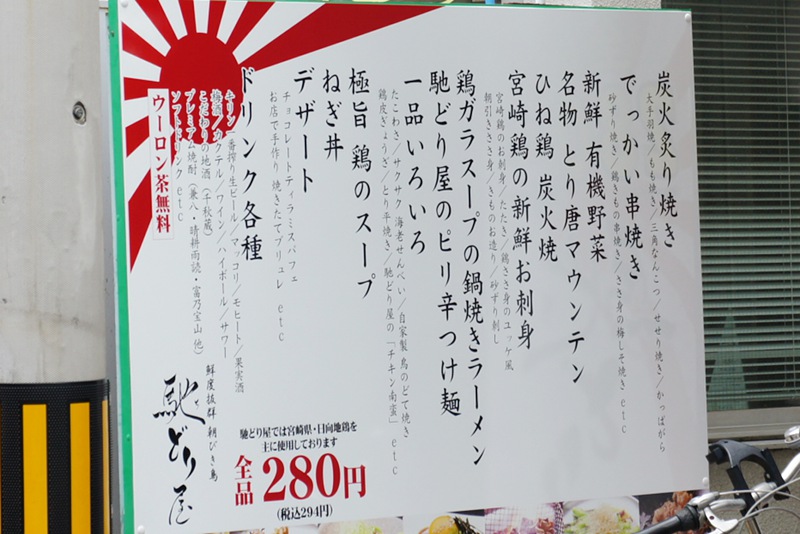 炭火炙り焼き
大手羽焼/もも焼き/三角なんこつ/せせり焼き/かっぱがら
でっかい串焼き
砂ずり焼き/鶏きもの串焼き/ささ身の梅しそ焼き etc
新鮮 有機野菜
名物 とり唐マウンテン
ひね鶏 炭火焼
宮崎鶏の新鮮お刺身
宮崎鶏のお刺身/たたき/鶏ささ身のユッケ風
朝引きささ身/きものお造り/砂ずり刺し
鶏ガラスープの鍋焼きラーメン
馳どり屋のピリ辛つけ麺
一品いろいろ
たこわさ/サクサク 海老せんべい/自家製 鳥のどて焼き
鶏皮ぎょうざ/とり平焼き/馳どり屋の「チキン南蛮」etc
極旨 鶏のスープ
ねぎ丼
デザート
チョコレートティラミスパフェ
お店で手作り 焼きたてブリュレ etc
ドリンク各種
キリン一番搾り生ビール/マッコリ/モヒート/果実酒
梅酒/カクテル/ワイン/ハイボール/サワー
こだわりの地酒(千秋蔵)
プレミアム焼酎(兼八・晴耕雨読・富乃宝山 他)
ソフトドリンク etc
ウーロン茶無料
鮮度抜群 朝びき鳥
馳どり屋
馳どり屋では宮崎県・日向地鶏を
主に使用しております
全品280円
(税込294円)